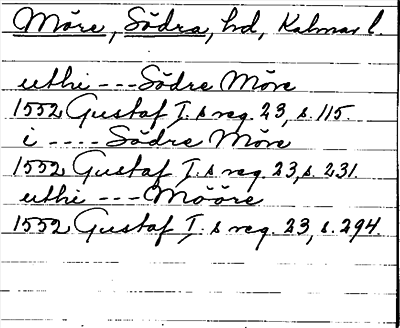 Möre, Södra, hd, Kalmar l.
uthi --- Södre Möre
1552 Gustaf I.s reg. 23, s. 115
i ---- Södre Möre
1552 Gustaf I.s reg. 23, s. 231.
uthi --- Mööre
1552 Gustaf I.s reg. 23, s. 294.